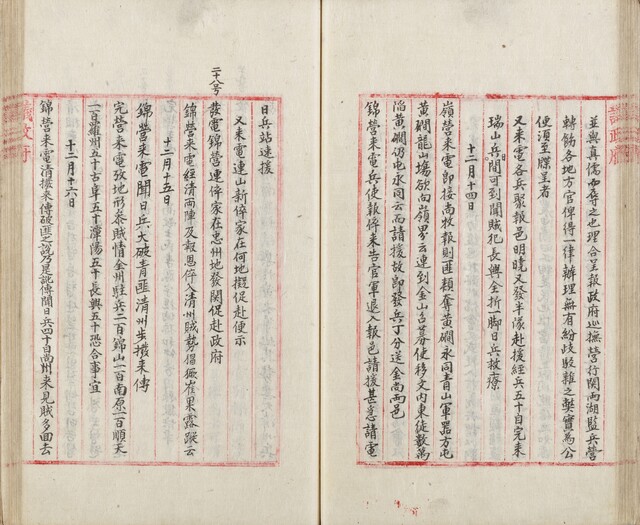 並與真儒而辱之也理合呈報政府巡撫營行関兩湖監兵營
轉飭各地方官俾得一律辦理無有紛歧駁雜之獘實爲公
便須至牒呈者
又來電各兵聚報邑明曉又發半隊赴援經兵五十自完來
瑞山兵間可到聞賊犯長興全折一脚日兵救療
十二月十四日
嶺營來電卽接尚牧報則匪類奪黃澗永同青山軍器方屯
黃澗龍山塲欲向嶺界云連到金山召募使移文內東徒數萬
陷黃澗仍屯永同云而請援故卽發兵丁分送金尙兩邑
錦營來電兵使報倅來告官軍退入報邑請援甚急請電
議政府
日兵站速援
又來電連山新倅家在何地撥促赴便示
二十八号
發電錦營連倅家在忠州地發関促赴政府
錦營來電經淸尚陣及報恩倅入淸州賊勢猖獗崔果露蹤云
十二月十五日
錦營來電聞日兵大破靑匪淸州步撥來傳
完營來電敀地形泰賊情金州駐兵二百錦山一百南原一百順天
一百羅州五十古阜五十潭陽五十長興五十恐合事宜
十二月十六日
錦營來電淸撥來傳破匪之說乃是訛傳聞日兵四十自尙州來見賊多面去
議政府